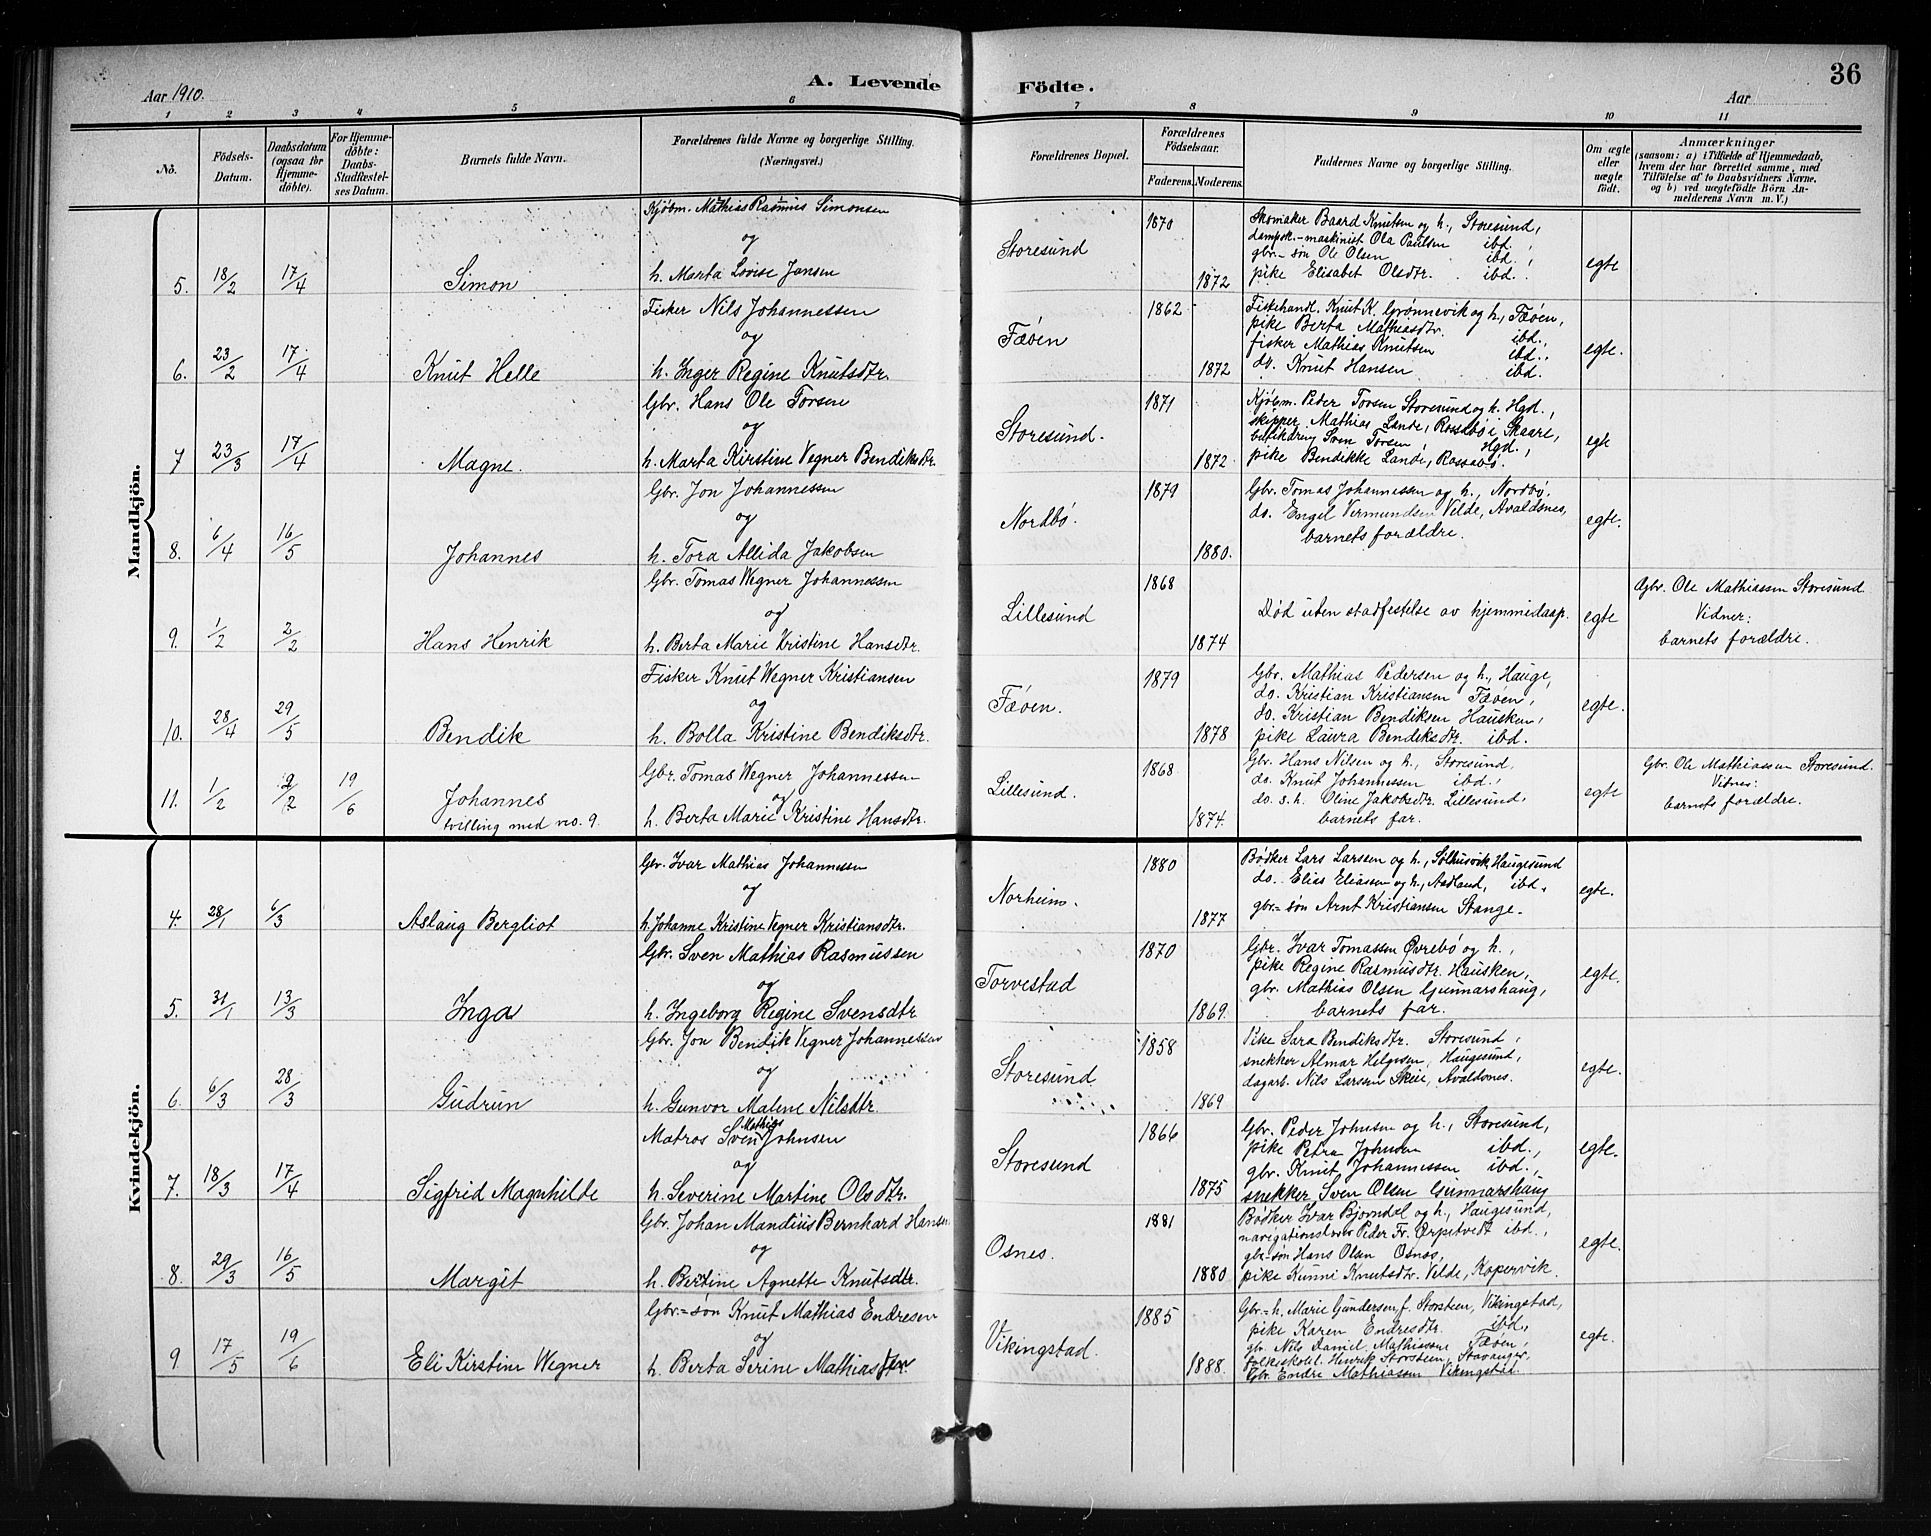 Aar 1910.
A. Levende
Födte.
Aar
36
1 2 3 4 5 6 7 8 9 10 11
No.
Födsels-
Datum.
Daabsdatum
(ogsaa for
Hjemme-
döbte).
For Hjemme-
döbte:
Daabs-
Stadfæstel-
ses Datum.
Barnets fulde Navn.
Forældrenes fulde Navne og borgerlige Stilling.
(Næringsvei.)
Forældrenes Bopæl.
Forældrenes
Födselsaar.
Faderens. Moderens.
Faddernes Navne og borgerlige Stilling.
Om ægte
eller
uægte
födt.
Anmærkninger
(saasom: a) i Tilfælde af Hjemmedaab,
hvem der har forrettet samme, med
Tilföielse af to Daabsvidners Navne,
og b) ved uægtefödte Börn An-
melderens Navn m. V.)
Mandkjön.
5. 18/2 17/4
Simon
Kjøbm. Mathias Rasmus Simonsen
og
h. Marta Lovise Jansen
Storesund
1870
1872
Skomaker Baard Knutsen og h., Storesund,
dampsk.-maskinist Ola Paulsen ibd.,
gbr.-søn Ole Olsen ibd.,
pike Elisabet Olsdtr. ibd.
egte
6. 23/2 17/4
Knut Helle
Fisker Nils Johannessen
og
h. Inger Regine Knutsdtr.
Fæøen
1862
1872
Fiskehandl. Knut K. Grønnevik og h., Fæøen,
pike Berta Mathiasdtr. ibd.,
fisker Mathias Knutsen ibd.,
do. Knut Hansen ibd.
egte.
7 23/3 17/4
Magne.
Gbr. Hans Ole Torsen
og
h. Marta Kirstine Vegner Bendiksdtr.
Storesund.
1871
1872
Kjøbm. Peder Torsen Storesund og h. Hgd.,
skipper Mathias Lande, Rossabø i Skaare,
Sven Torsen, Hgd.,
pike Bendikke Lande, Rossabø.
egte
8. 6/4 16/5
Johannes
Gbr. Jon Johannessen
og
h. Tora Allida Jakobsen
Nordbø.
1879
1880.
Gbr. Tomas Johannessen og h., Nordbø,
do. Engel Vermundsen Velde, Avaldsnes,
barnets forældre.
egte.
9. 1/2 2/2
Hans Henrik
Gbr. Tomas Wegner Johannessen
og
h. Berta Marie Kristine Hansdtr.
Lillesund
1868
1874
Død uten stadfestelse av hjemmedaap.
egte
Gbr. Ole Mathiassen Storesund
Vidner:
barnets forældre.
10. 28/4 29/5
Bendik
Fisker Knut Wegner Kristiansen
og
h. Bolla Kristine Bendiksdtr.
Fæøen.
1879
1878
Gbr. Mathias Pedersen og h., Hauge,
do. Kristian Kristiansen Fæøen,
do. Kristian Bendiksen Hausken,
pike Laura Bendiksdtr. ibd.
egte.
11. 1/2 2/2 19/6
Johannes
tvilling med no. 9.
Gbr. Tomas Wegner Johannessen
og
h. Berta Marie Kristine Hansdtr.
Lillesund.
1868
1874.
Gbr. Hans Nilsen og h., Storesund,
do. Knut Johannessen ibd.,
do. s. h. Oline Jakobsdtr. Lillesund,
barnets far.
egte
Gbr. Ole Mathiassen Storesund.
Vidner:
barnets forældre.
Kvindekjön.
4. 28/1 6/3
Aslaug Bergliot
Gbr. Ivar Mathias Johannessen
og
h. Johanne Kristine Vegner Kristiansdtr.
Norheim.
1880
1877
Bødker Lars Larsen og h., Solhusvik, Haugesund
do. Elias Eliassen og h., Aadland, ibd.,
gbr.-søn Arnt Kristiansen Stange.
egte.
5. 31/1 13/3
Inga
Gbr. Sven Mathias Rasmussen
og
h. Ingeborg Regine Svensdtr
Torvestad
1870
1869.
Gbr. Ivar Tomassen Øvrebø og h.,
pike Regine Rasmusdtr. Hausken,
gbr. Mathias Olsen Gunnarshaug,
barnets far.
egte.
6. 6/3 28/3
Gudrun
Gbr. Jon Bendik Vegner Johannessen
og
h. Gunvor Malene Nilsdtr
Storesund
1858
1869
Pike Sara Bendiksdtr. Storesund,
snekker Almar Helgesen, Haugesund,
dagarb. Nils Larssen Skeie, Avaldsnes.
egte.
7. 18/3 17/4
Sigfrid Magnhilde
Matros Sven Mathias Johnsen
og
h. Severine Martine Olsdtr.
Storesund
1866
1875
Gbr. Peder Johnsen og h., Storesund,
pike Petra Johnsen ibd.,
gbr. Knut Johannessen ibd.,
snekker Sven Olsen Gunnarshaug
egte.
8. 29/3 16/5
Margit
Gbr. Johan Mandius Bernhard Hansen
og
h. Bertine Agnette Knutsdtr.
Osnes.
1881
1880
Bødker Ivar Bjorndal og h., Haugesund,
navigationslærer Peder Fr. Ørpetvedt ibd.,
gbr-søn Hans Olsen Osnes,
pike Kunni Knutsdtr. Velde, Kopervik.
egte.
9 17/5 19/6
Eli Kirstine Wegner
Gbr.-søn Knut Mathias Endresen
og
h. Berta Serine Mathiassen
Vikingstad.
1885
1888.
Gbr.-h. Marie Gundersen f. Storsteen, Vikingstad,
pike Karen Endresdtr. ibd.,
gbr. Nils Daniel Mathiassen Fæøen,
Henrik Storsteen, Stavanger,
Gbr. Endre Mathiassen Vikingstad.
egte.